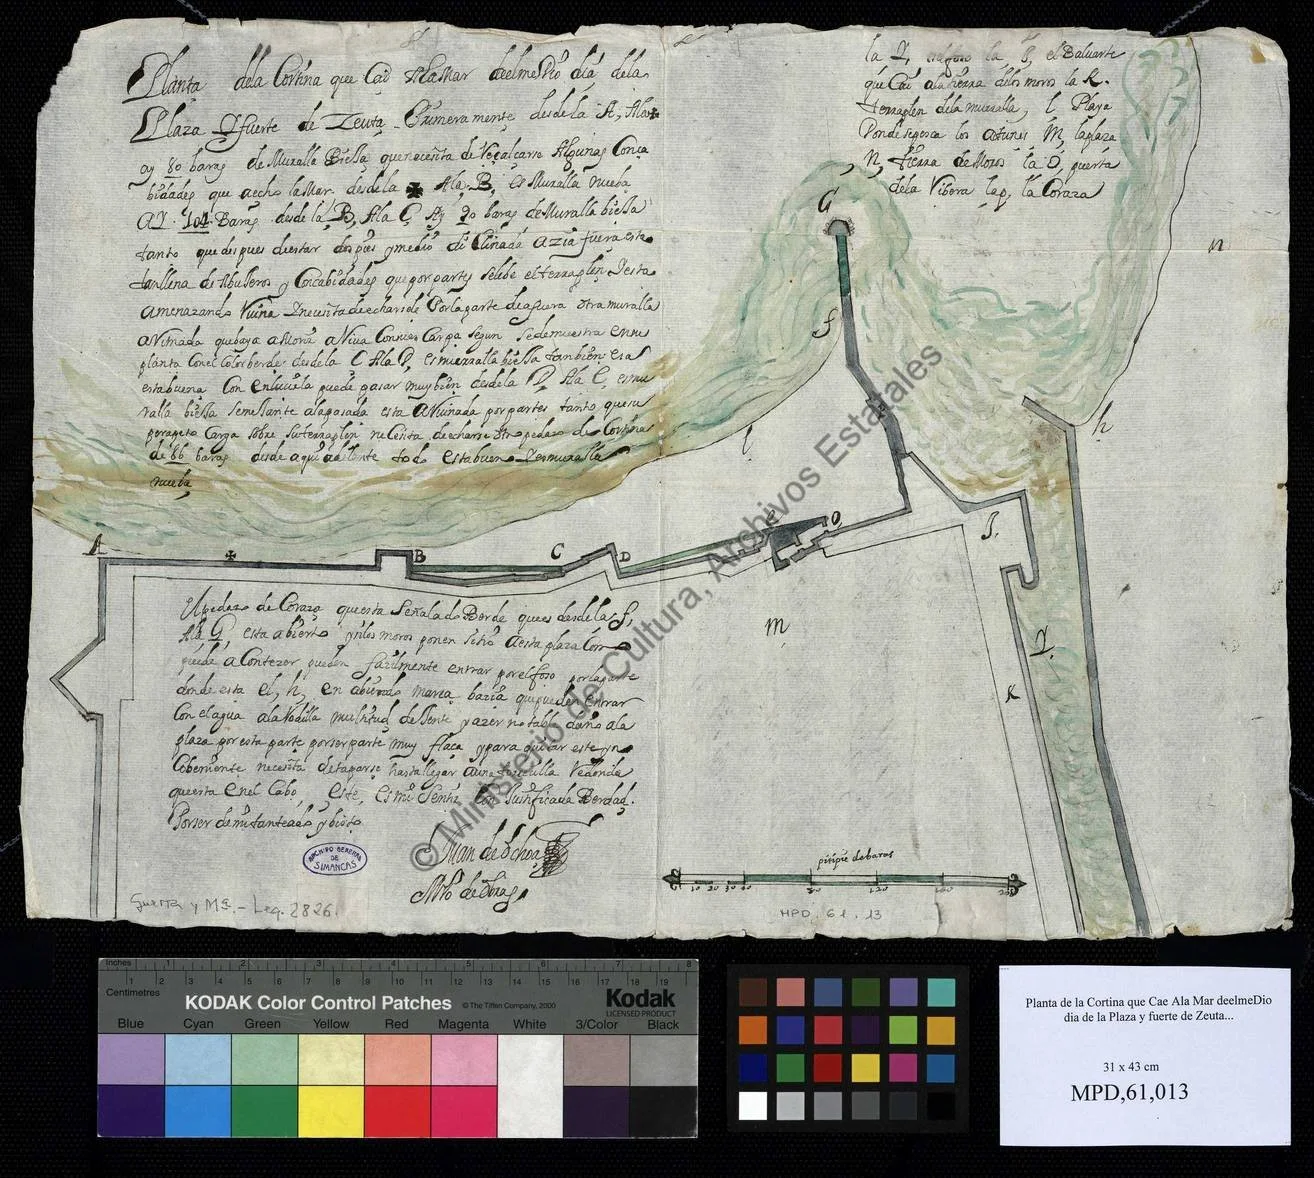 Planta dela Cortina que Cae AlaMar deelmeDio dia dela
Plaza Y fuerte de Zeuta Primeramente desdela A, Ala ✠
ay 80 baras de Muralla Biexa que necesita de Recalcarse Algunas Conca
bidades que aecho la Mar desdela ✠ Ala B, es Muralla nueba
AY 104 Baras desde la B, Ala C, Ay 90 baras de Muralla biexa
tanto que despues de estar dos pies y medio de Clinada azia fuera esta
tan llena de Abuxeros y Concabidades que por partes se lebe el terraplen Y esta
Amenazando Ruina Y necesita de echarsele Por la parte de afuera otra muralla
segun se demuestra en su
planta Con el Color berde desde la C Ala D, es murralla biexa tambien esta
esta buena Con enlucirla puede pasar muy bien desde la D, Ala E, es mu
ralla biexa semexante ala pasada esta ARuinada por partes tanto que su
parapeto Carga sobre su terraplen necesita de echarse otro pedazo de Cortina
de 86 baras desde aqui adelente todo esta bueno Y es muralla
nueba
la Y, el foso la J, el Baluarte
que Cae ala tierra delos moros la K.
terraplen dela muralla, l Playa
Donde se pesca los atunes M, la plaza
N, tierra de Moros la O, puerta
dela Vibora la p, la Coraza
G
n
f
h
l
J.
A
✠
B
C
D
e
O
m
Y.
K
El pedazo de Coraza que esta Señalado Berde que es desde la f,
Ala G, esta abierto y si los moros ponen sitio a esta plaza Como
puede aContezer pueden fazilmente entrar por el foso por la parte
donde esta el, h, en abiendo marea bazia que pueden entrar
Con el agua ala Rodilla multitud de Jente y azer notable daño ala
plaza por esta parte por ser parte muy flaca y para quitar este yn
Cobeniente necesita de taparse hasta llegar a una torecilla Redonda
que esta en el Cabo este, es mi Sentir Con Justificada Berdad.
Por ser de mi tanteado y bisto
Juan de Ochoa
Mro de Obras
ARCHIVO GENERAL
DE
SIMANCAS
Guerra y Ma. - Leg. 2826.
pitipie de baras
10 20 30 40 80 120 160 200
MPD. 61. 13
© Ministerio de Cultura, Archivos Estatales
Inches 1 2 3 4 5 6 7 8
Centimetres 1 2 3 4 5 6 7 8 9 10 11 12 13 14 15 16 17 18 19
KODAK Color Control Patches © The Tiffen Company, 2000 Kodak
LICENSED PRODUCT
Blue Cyan Green Yellow Red Magenta White 3/Color Black
Planta de la Cortina que Cae Ala Mar deelmeDio
dia de la Plaza y fuerte de Zeuta...
31 x 43 cm
MPD,61,013